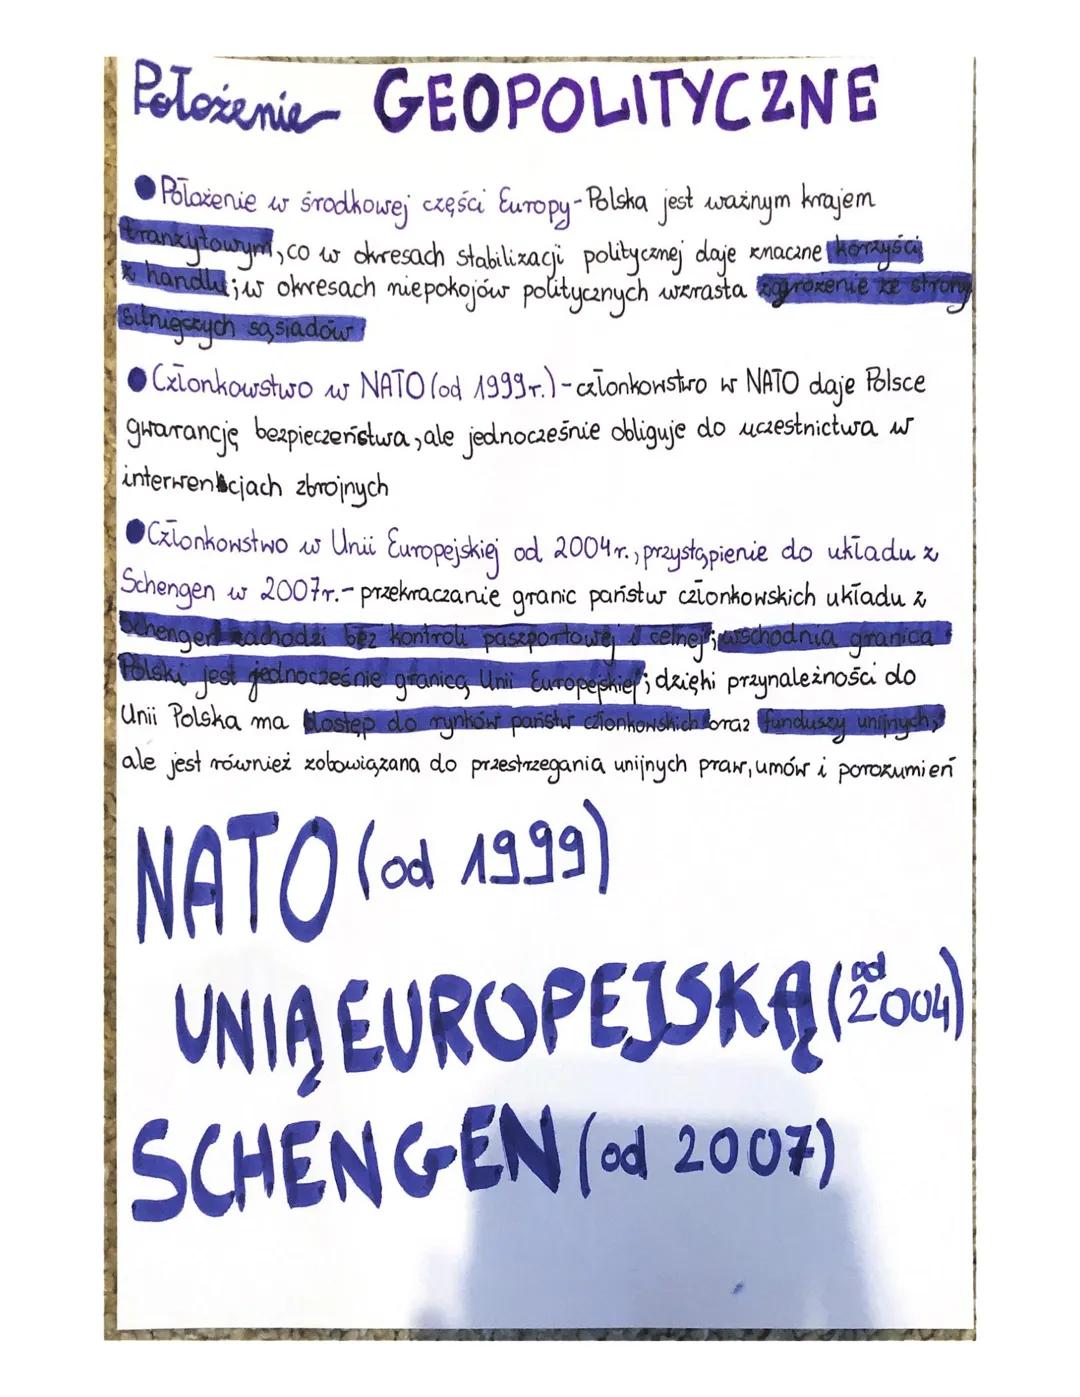 Położenie GEOPOLITYCZNE
Położenie w środkowej części Europy - Polska jest ważnym krajem
tranzytowym, co w okresach stabilizacji politycznej daje znaczne korzyści
z handlu; w okresach niepokojów politycznych wzrasta zagrożenie ze strony
silniejszych sąsiadów
Członkowstwo w NATO (od 1999r.) - członkowstwo w NATO daje Polsce
gwarancję bezpieczeństwa, ale jednocześnie obliguje do uczestnictwa w
interwencjach zbrojnych
Członkowstwo w Unii Europejskiej od 2004r., przystąpienie do układu z
Schengen w 2007r. - przekraczanie granic państw członkowskich układu z
Schengen zachodzi bez kontroli paszportowej i celnej; wschodnia granica
Polski jest jednocześnie granicą Unii Europejskiej; dzięki przynależności do
Unii Polska ma dostęp do rynków państw członkowskich oraz funduszy unijnych,
ale jest również zobowiązana do przestrzegania unijnych praw, umów i porozumień
NATO (od 1999)
UNIĄ EUROPEJSKĄ (od 2004)
SCHENGEN (od 2007)